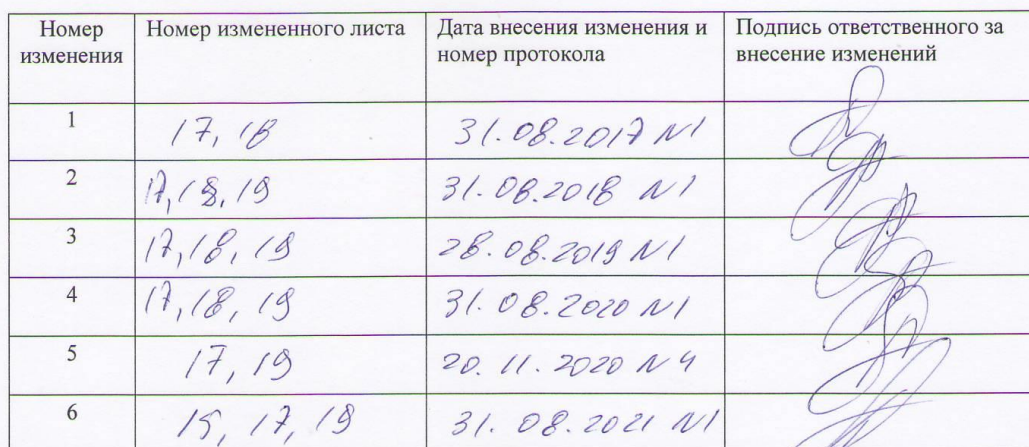 Номер изменения Номер измененного листа Дата внесения изменения и номер протокола Подпись ответственного за внесение изменений
1 17, 18 31.08.2017 N1
2 17, 18, 19 31.08.2018 N1
3 17, 18, 19 28.08.2019 N1
4 17, 18, 19 31.08.2020 N1
5 17, 19 20.11.2020 N4
6 15, 17, 19 31.08.2021 N1